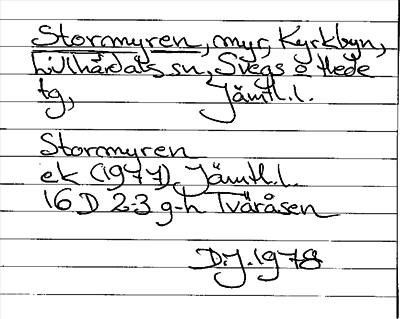 Stormyren, myr, Kyrkbyn,
Lillhärdals sn, Svegs o Hede
tg, Jämtl.l.
Stormyren
ek (1977) Jämtl.l.
16 D 2-3 g-h Tväråsen
D.J. 1978